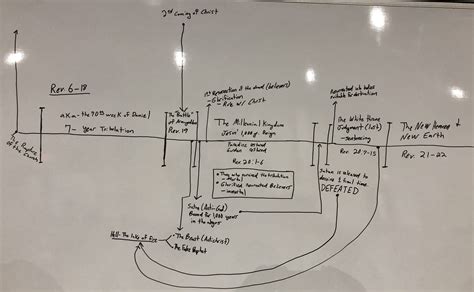 2nd Coming of Christ
Rev. 6-18
a.k.a. the 70th week of Daniel
7-Year Tribulation
The Rapture
of the Church
The "Battle"
of Armageddon
Rev. 19
1st Resurrection of the dead (believers)
- Glorification
- Rule w/ Christ
The Millennial Kingdom
Jesus' 1,000 yr. Reign
Paradise restored
Rev. 20:1-6
• Those who survived the tribulation
- mortal
• Glorified resurrected Believers
- immortal
Satan (Anti-God)
Bound for 1,000 years
in the abyss
• The Beast (Antichrist)
• The False Prophet
Hell - The lake of Fire
Satan is released to
deceive 1 final time.
DEFEATED
The White Throne
Judgment (lost)
- sentencing
Rev. 20:7-15
The New Heaven
New Earth
Rev. 21-22